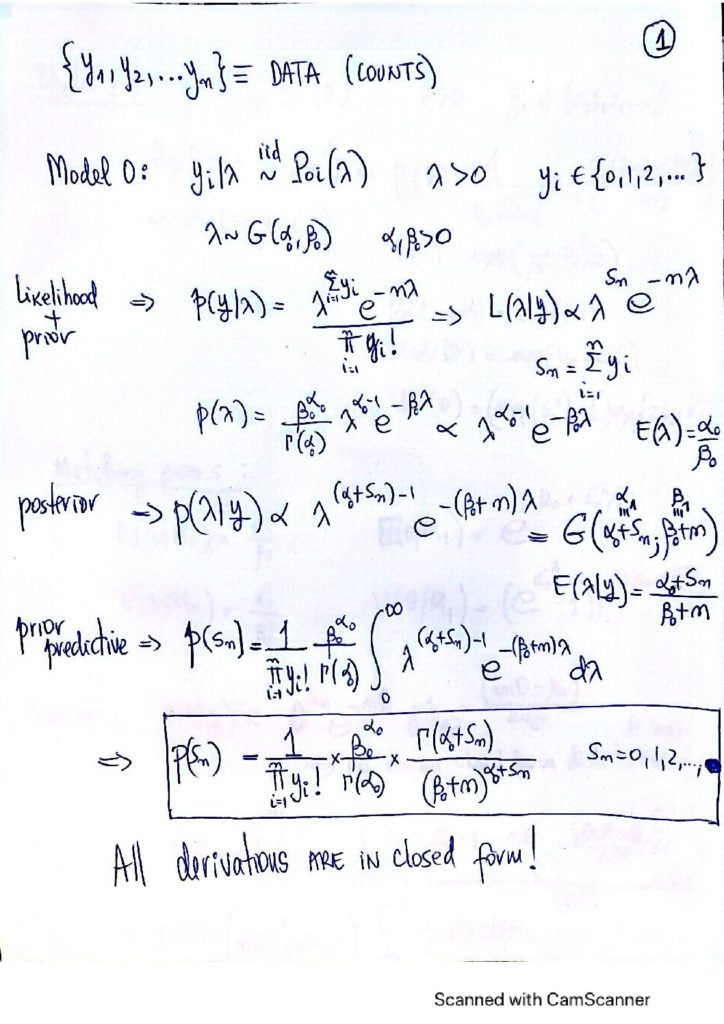 1
{y₁, y₂, ... yₙ} ≡ DATA (COUNTS)
Model 0: yᵢ|λ iid ~ Poi(λ) λ > 0 yᵢ ∈ {0, 1, 2, ...}
λ ~ G(α₀, β₀) α₀, β₀ > 0
Likelihood + prior ⇒ p(y|λ) = λ^{Σ_{i=1}^{n} yᵢ} e^{-nλ} / Π_{i=1}^{n} yᵢ! ⇒ L(λ|y) ∝ λ^{Sₙ} e^{-nλ}
Sₙ = Σ_{i=1}^{n} yᵢ
p(λ) = β₀^{α₀} / Γ(α₀) λ^{α₀-1} e^{-β₀λ} ∝ λ^{α₀-1} e^{-β₀λ} E(λ) = α₀/β₀
posterior ⇒ p(λ|y) ∝ λ^{(α₀+Sₙ)-1} e^{-(β₀+n)λ} ≡ G(α₀+Sₙ; β₀+n)
E(λ|y) = (α₀+Sₙ)/(β₀+n)
prior predictive ⇒ p(Sₙ) = 1/Π_{i=1}^{n} yᵢ! β₀^{α₀}/Γ(α₀) ∫₀^∞ λ^{(α₀+Sₙ)-1} e^{-(β₀+n)λ} dλ
⇒ p(Sₙ) = 1/Π_{i=1}^{n} yᵢ! × β₀^{α₀}/Γ(α₀) × Γ(α₀+Sₙ)/(β₀+n)^{α₀+Sₙ} Sₙ = 0, 1, 2, ...,
All derivations ARE in closed form!
Scanned with CamScanner